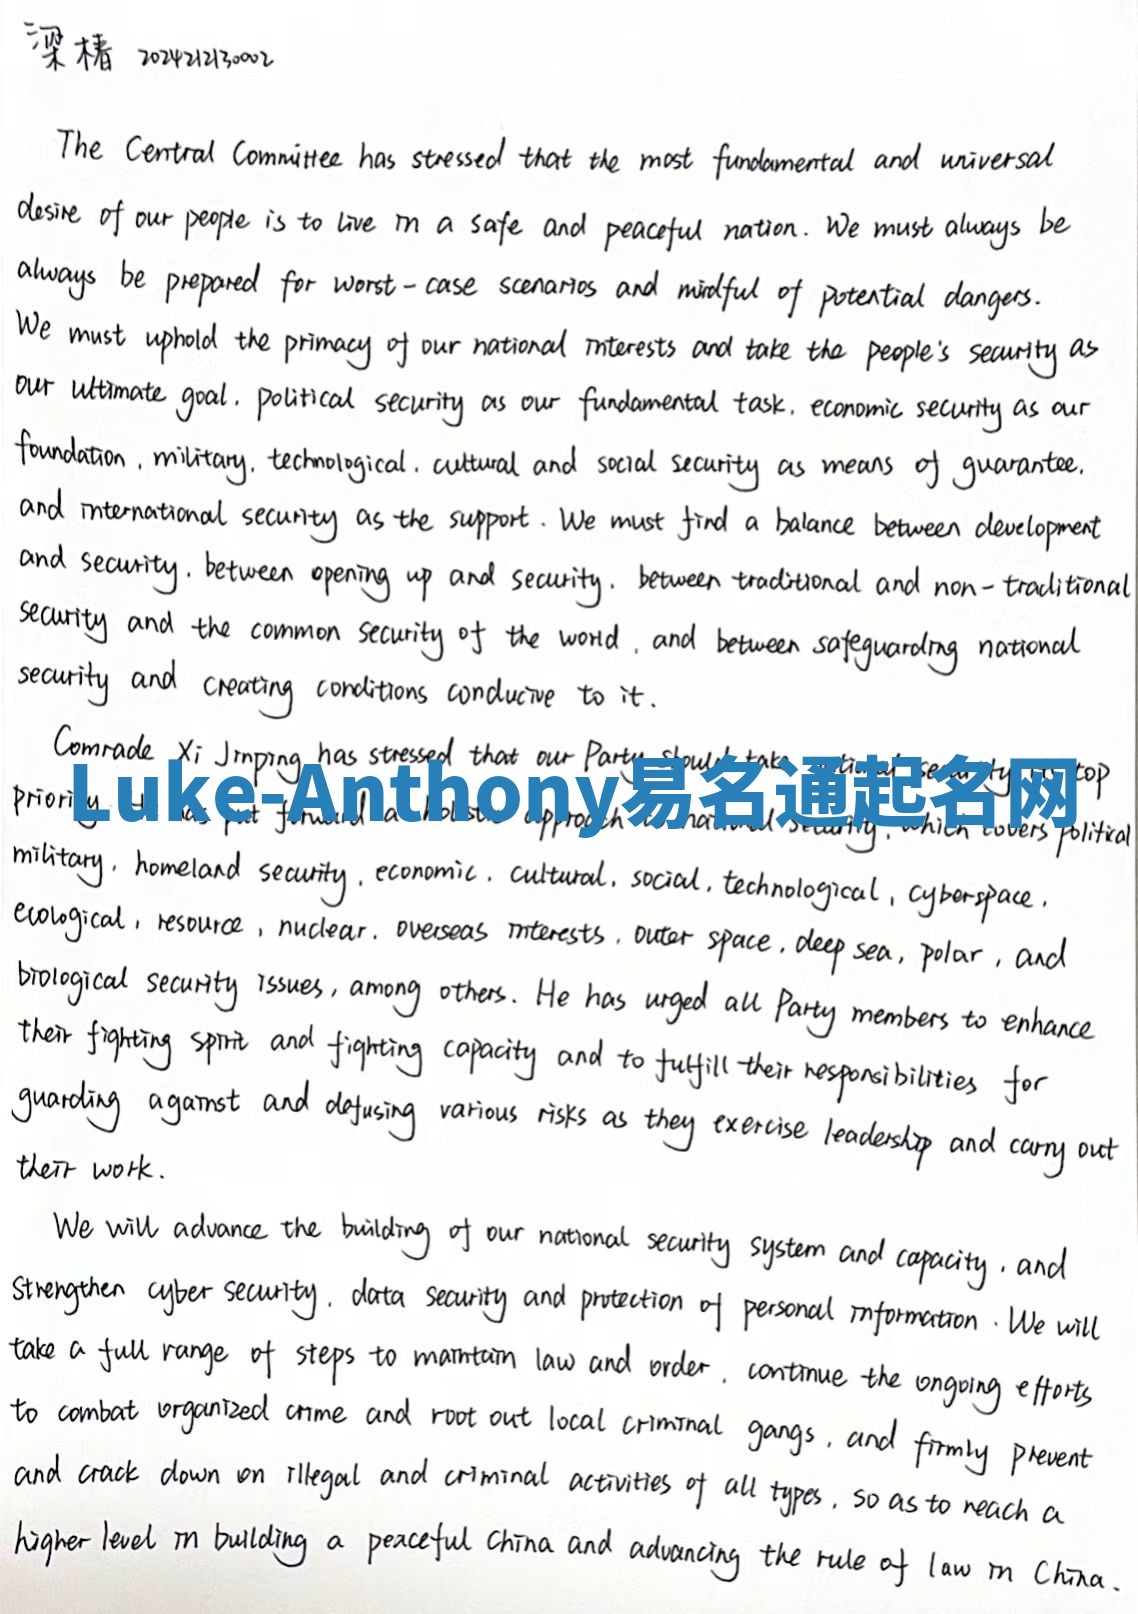 梁椿 2024212130002
The Central Committee has stressed that the most fundamental and universal
desire of our people is to live in a safe and peaceful nation. We must always be
always be prepared for worst-case scenarios and mindful of potential dangers.
We must uphold the primacy of our national interests and take the people's security as
our ultimate goal, political security as our fundamental task, economic security as our
foundation, military, technological, cultural and social security as means of guarantee,
and international security as the support. We must find a balance between development
and security, between opening up and security, between traditional and non-traditional
security and the common security of the world, and between safeguarding national
security and creating conditions conducive to it.
Comrade Xi Jinping has stressed that our Party should take national security top
Luke-Anthony易名通起名网
priority. He has put forward a holistic approach national security, which covers political
military, homeland security, economic, cultural, social, technological, cyberspace,
ecological, resource, nuclear, overseas interests, outer space, deep sea, polar, and
biological security issues, among others. He has urged all Party members to enhance
their fighting spirit and fighting capacity and to fulfill their responsibilities for
guarding against and defusing various risks as they exercise leadership and carry out
their work.
We will advance the building of our national security system and capacity, and
strengthen cyber security, data security and protection of personal information. We will
take a full range of steps to maintain law and order, continue the ongoing efforts
to combat organized crime and root out local criminal gangs, and firmly prevent
and crack down on illegal and criminal activities of all types, so as to reach a
higher level in building a peaceful China and advancing the rule of law in China.